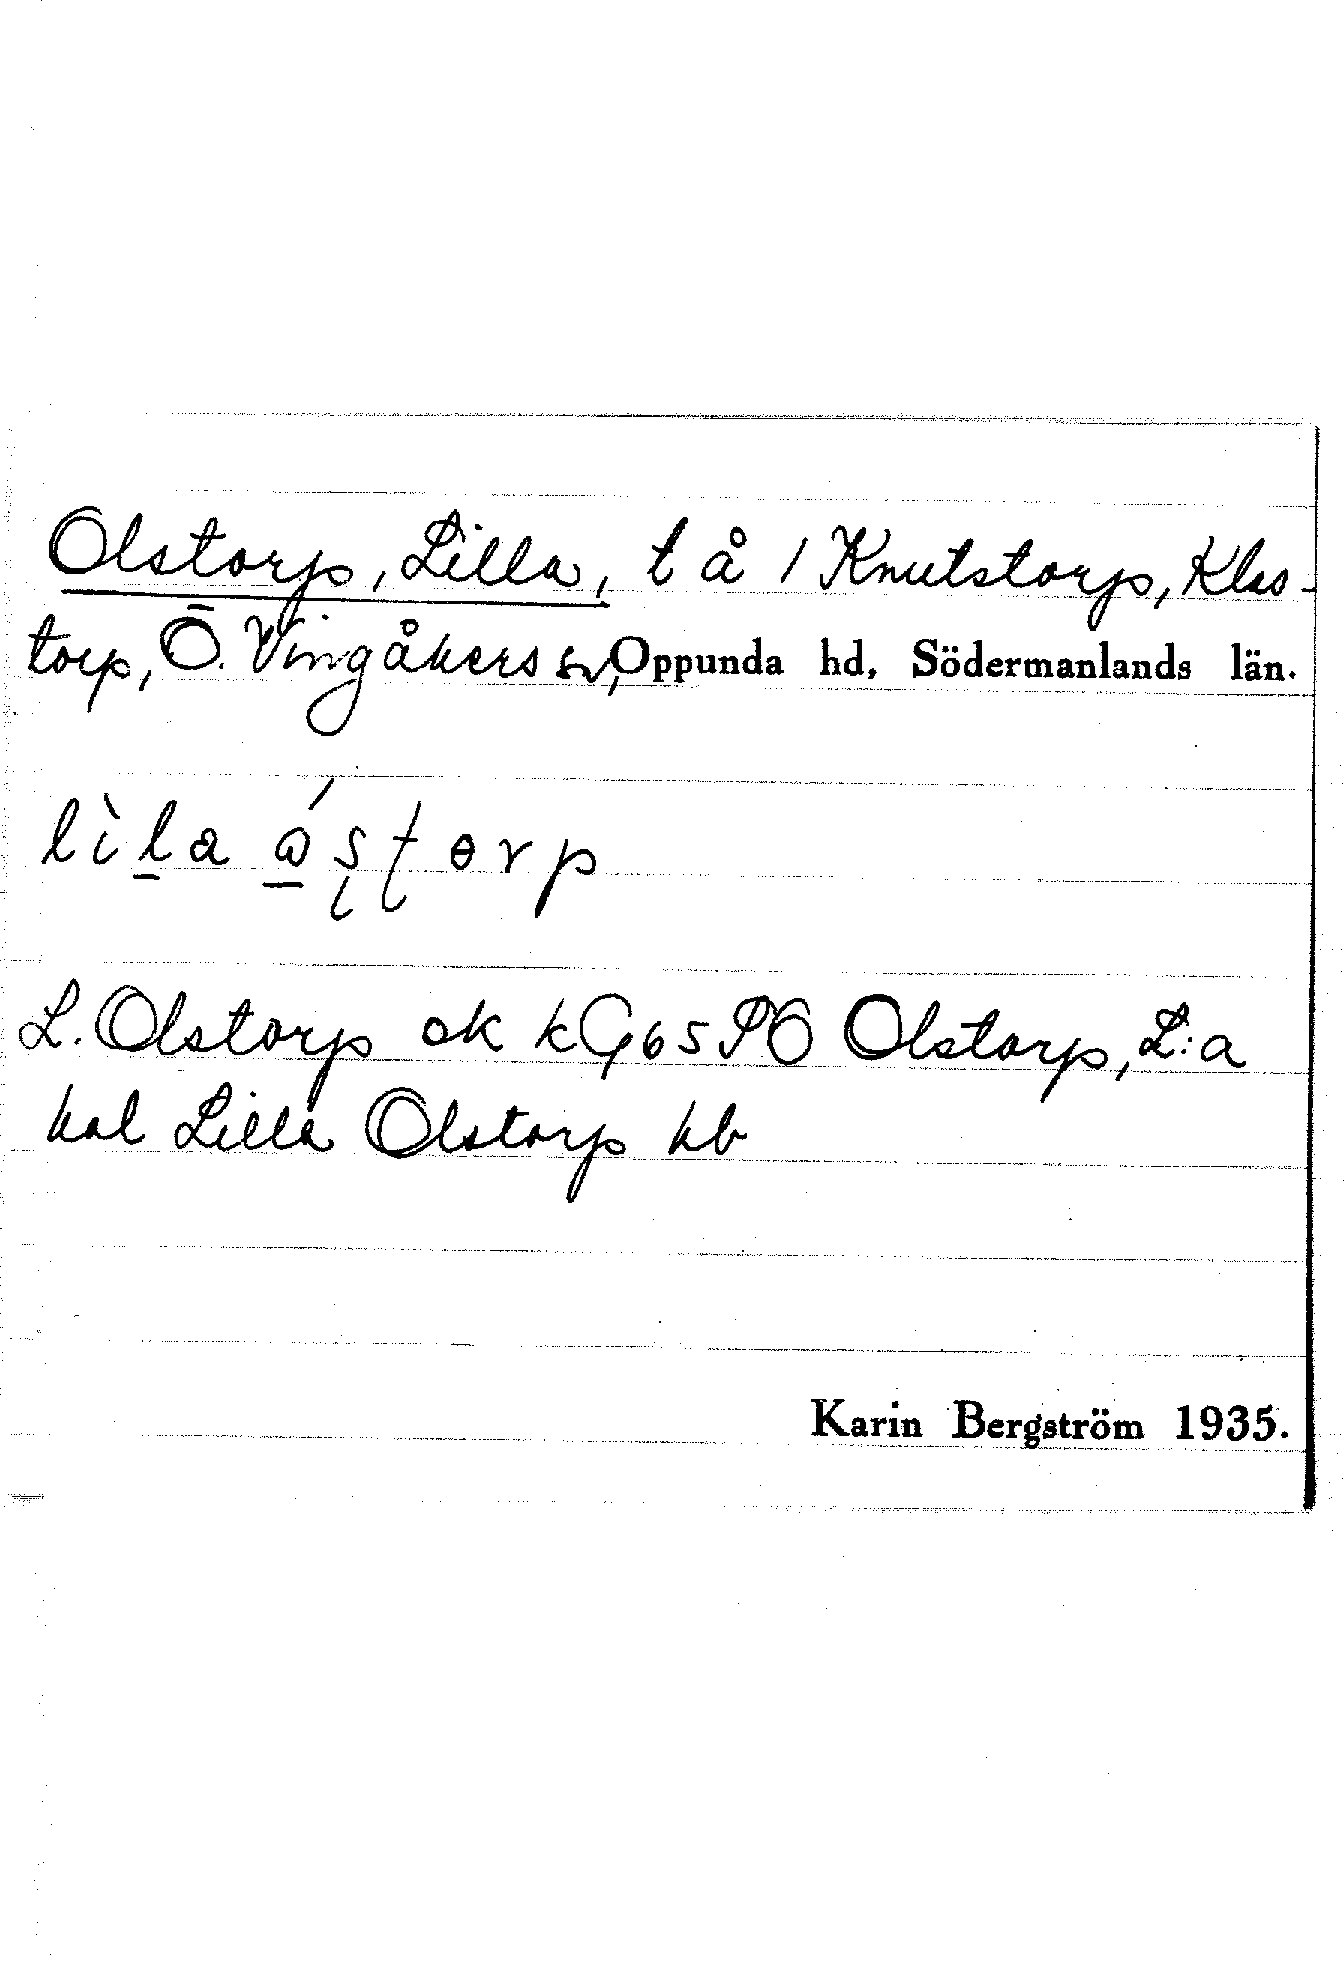 Olstorp, Lilla, t å 1 Knutstorp, Klas-
torp, Ö. Vingåkers sn, Oppunda hd, Södermanlands län.
lìla ó̱ʂʈɵrp
L. Olstorp ek kG65PÖ Olstorp, L:a
hal Lilla Olstorp kb
Karin Bergström 1935.